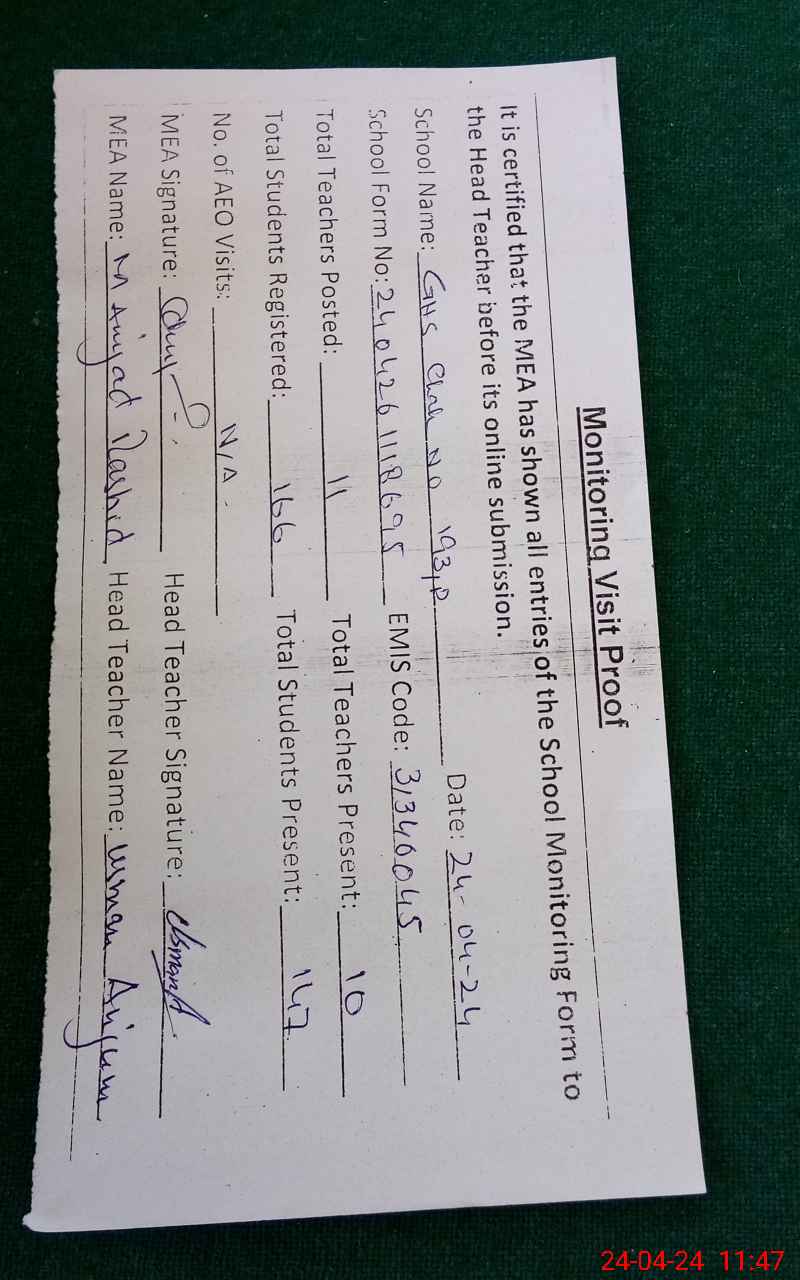 Monitoring Visit Proof
It is certified that the MEA has shown all entries of the School Monitoring Form to
the Head Teacher before its online submission.
School Name: GHS Chak No 193/P Date: 24-04-24
School Form No: 2404261118695 EMIS Code: 31340045
Total Teachers Posted: 11 Total Teachers Present: 10
Total Students Registered: 166 Total Students Present: 147
No. of AEO Visits: N/A
MEA Signature: Head Teacher Signature:
MEA Name: M Amjad Rashid Head Teacher Name: Usman Anjum
24-04-24 11:47